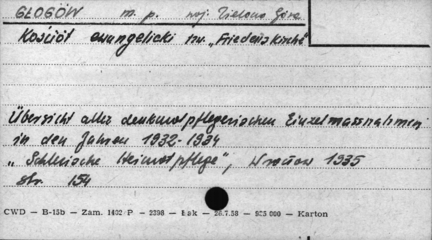 GŁOGÓW m. p. woj. Zielona Góra
Kościół ewangelicki tzw. „Friedenskirche"
Übersicht aller denkmalpflegerischen Einzelmassnahmen
in den Jahren 1932-1934
„Schlesische Heimatpflege", Wrocław 1935
str. 154
CWD — B-15b — Zam. 1402/P — 2398 — Łak — 26.7.58 — 525 000 — Karton